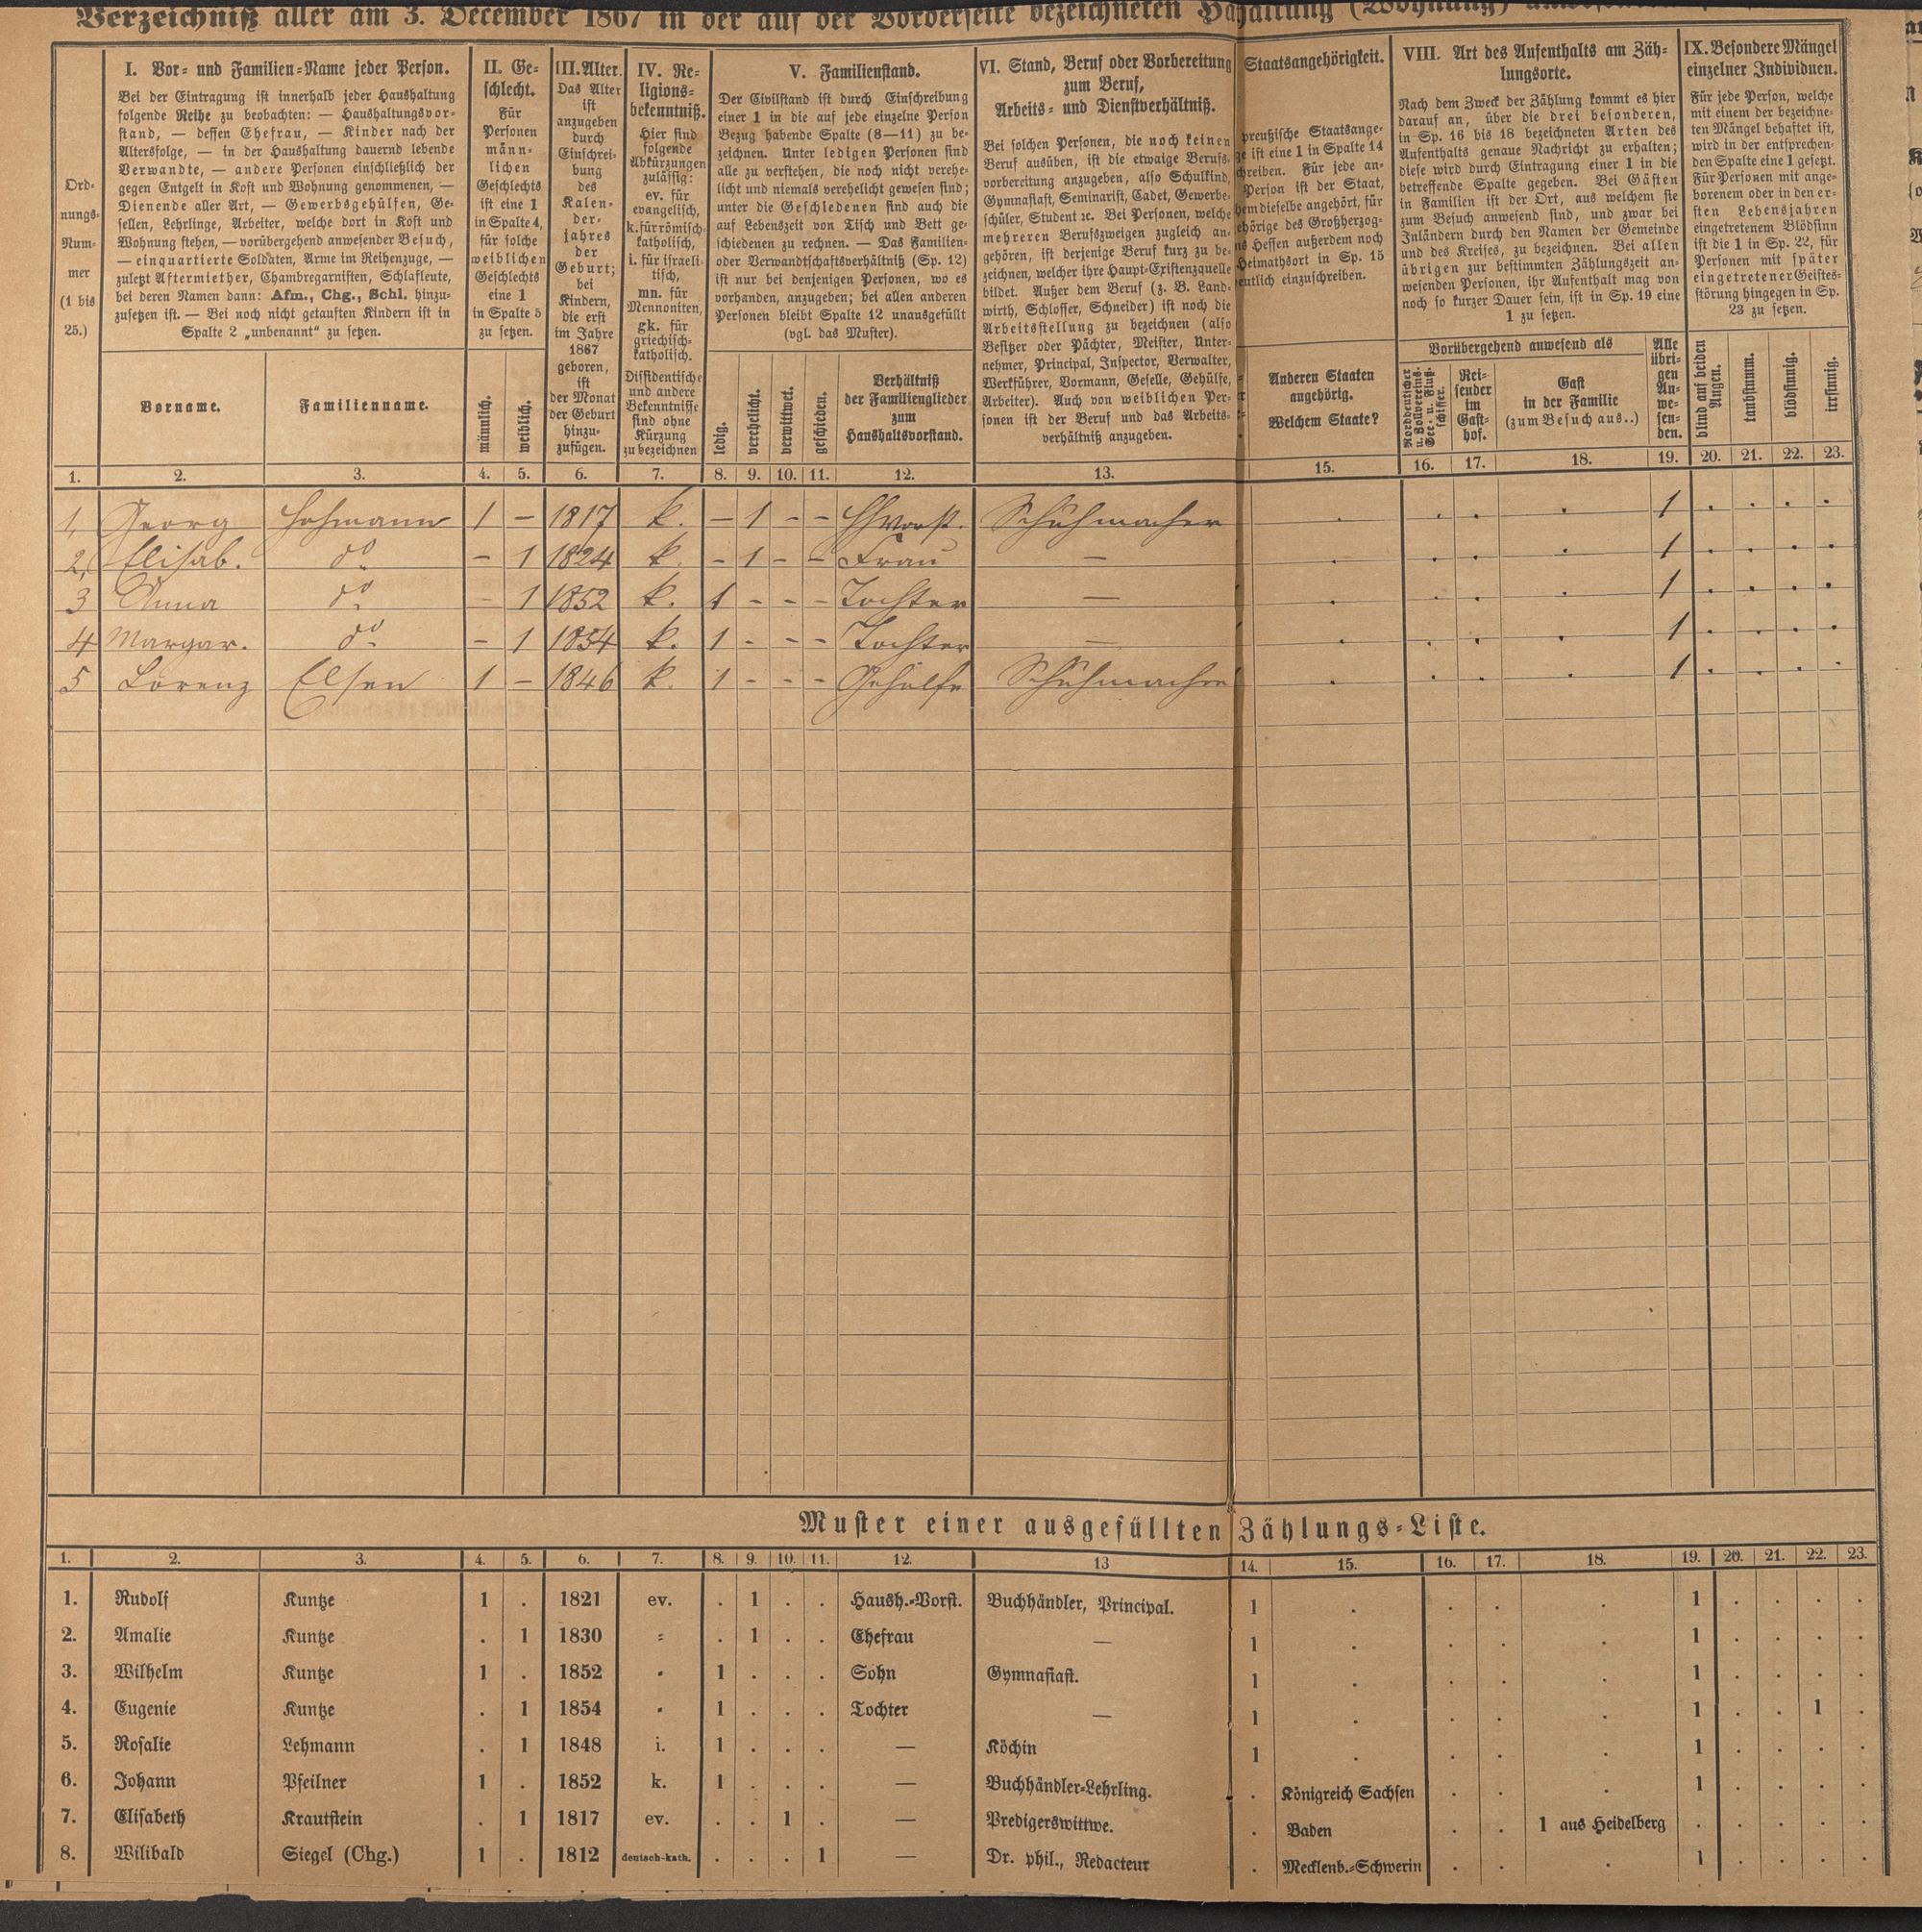 Verzeichniß aller am 3. December 1867 in der auf der Vorderseite bezeichneten
Ord-
nungs-
Num-
mer
(1 bis
25.)
I. Vor- und Familien-Name jeder Person.
Bei der Eintragung ist innerhalb jeder Haushaltung
folgende Reihe zu beobachten: — Haushaltungsvor-
stand, — dessen Ehefrau, — Kinder nach der
Altersfolge, — in der Haushaltung dauernd lebende
Verwandte, — andere Personen einschließlich der
gegen Entgelt in Kost und Wohnung genommenen, —
Dienende aller Art, — Gewerbsgehülfen, Ge-
sellen, Lehrlinge, Arbeiter, welche dort in Kost und
Wohnung stehen, — vorübergehend anwesender Besuch,
— einquartierte Soldaten, Arme im Reihenzuge, —
zuletzt Aftermiether, Chambregarnisten, Schlafleute,
bei deren Namen dann: Afm., Chg., Schl. hinzu-
zusetzen ist. — Bei noch nicht getauften Kindern ist in
Spalte 2 „unbenannt“ zu setzen.
Vorname.
Familienname.
II. Ge-
schlecht.
Für
Personen
männ-
lichen
Geschlechts
ist eine 1
in Spalte 4,
für solche
weiblichen
Geschlechts
eine 1
in Spalte 5
zu setzen.
männlich.
weiblich.
III. Alter.
Das Alter
ist
anzugeben
durch
Einschrei-
bung
des
Kalen-
der-
jahres
der
Geburt;
bei
Kindern,
die erst
im Jahre
1867
geboren,
ist
der Monat
der Geburt
hinzu-
zufügen.
IV. Re-
ligions-
bekenntniß.
Hier sind
folgende
Abkürzungen
zulässig:
ev. für
evangelisch,
k. für römisch-
katholisch,
i. für israeli-
tisch,
mn. für
Mennoniten,
gk. für
griechisch-
katholisch.
Dissidentische
und andere
Bekenntnisse
sind ohne
Kürzung
zu bezeichnen
V. Familienstand.
Der Civilstand ist durch Einschreibung
einer 1 in die auf jede einzelne Person
Bezug habende Spalte (8—11) zu be-
zeichnen. Unter ledigen Personen sind
alle zu verstehen, die noch nicht verehe-
licht und niemals verehelicht gewesen sind;
unter die Geschiedenen sind auch die
auf Lebenszeit von Tisch und Bett ge-
schiedenen zu rechnen. — Das Familien-
oder Verwandtschaftsverhältniß (Sp. 12)
ist nur bei denjenigen Personen, wo es
vorhanden, anzugeben; bei allen anderen
Personen bleibt Spalte 12 unausgefüllt
(vgl. das Muster).
ledig.
verehelicht.
verwittwet.
geschieden.
Verhältniß
der Familienglieder
zum
Haushaltsvorstand.
VI. Stand, Beruf oder Vorbereitung
zum Beruf,
Arbeits- und Dienstverhältniß.
Bei solchen Personen, die noch keinen
Beruf ausüben, ist die etwaige Berufs-
vorbereitung anzugeben, also Schulkind,
Gymnasiast, Seminarist, Cadet, Gewerbe-
schüler, Student ꝛc. Bei Personen, welche
mehreren Berufszweigen zugleich an-
gehören, ist derjenige Beruf kurz zu be-
zeichnen, welcher ihre Haupt-Existenzquelle
bildet. Außer dem Beruf (z. B. Land-
wirth, Schlosser, Schneider) ist noch die
Arbeitsstellung zu bezeichnen (also
Besitzer oder Pächter, Meister, Unter-
nehmer, Principal, Inspector, Verwalter,
Werkführer, Vormann, Geselle, Gehülfe,
Arbeiter). Auch von weiblichen Per-
sonen ist der Beruf und das Arbeits-
verhältniß anzugeben.
Staatsangehörigkeit.
preußische Staatsange-
ist eine 1 in Spalte 14
Für jede an-
Person ist der Staat,
dieselbe angehört, für
des Großherzog-
Hessen außerdem noch
Heimathsort in Sp. 15
einzuschreiben.
Anderen Staaten
angehörig.
Welchem Staate?
VIII. Art des Aufenthalts am Zäh-
lungsorte.
Nach dem Zweck der Zählung kommt es hier
darauf an, über die drei besonderen,
in Sp. 16 bis 18 bezeichneten Arten des
Aufenthalts genaue Nachricht zu erhalten;
diese wird durch Eintragung einer 1 in die
betreffende Spalte gegeben. Bei Gästen
in Familien ist der Ort, aus welchem sie
zum Besuch anwesend sind, und zwar bei
Inländern durch den Namen der Gemeinde
und des Kreises, zu bezeichnen. Bei allen
übrigen zur bestimmten Zählungszeit an-
wesenden Personen, ihr Aufenthalt mag von
noch so kurzer Dauer sein, ist in Sp. 19 eine
1 zu setzen.
Vorübergehend anwesend als
Norddeutscher
u. Zollvereins-
See- u. Fluß-
schiffer.
Rei-
sender
im
Gast-
hof.
Gast
in der Familie
(zum Besuch aus..)
Alle
übri-
gen
An-
we-
sen-
den.
IX. Besondere Mängel
einzelner Individuen.
Für jede Person, welche
mit einem der bezeichne-
ten Mängel behaftet ist,
wird in der entsprechen-
den Spalte eine 1 gesetzt.
Für Personen mit ange-
borenem oder in den er-
sten Lebensjahren
eingetretenem Blödsinn
ist die 1 in Sp. 22, für
Personen mit später
eingetretener Geistes-
störung hingegen in Sp.
23 zu setzen.
blind auf beiden
Augen.
taubstumm.
blödsinnig.
irrsinnig.
1. 2. 3. 4. 5. 6. 7. 8. 9. 10. 11. 12. 13. 15. 16. 17. 18. 19. 20. 21. 22. 23.
1, Georg Hohmann 1 – 1817 k. – 1 – – HHVorst. Schuhmacher . . . . 1 . . . .
2, Elisab. do – 1 1824 k. – 1 – – Frau — . . . . 1 . . . .
3 Anna do – 1 1852 k. 1 – – – Tochter — . . . . 1 . . . .
4 Margar. do – 1 1854 k. 1 – – – Tochter — . . . . 1 . . . .
5 Lorenz Elsen 1 – 1846 k. 1 – – – Gehülfe Schuhmacher . . . . 1 . . . .
Muster einer ausgefüllten Zählungs-Liste.
1. 2. 3. 4. 5. 6. 7. 8. 9. 10. 11. 12. 13 14. 15. 16. 17. 18. 19. 20. 21. 22. 23.
1. Rudolf Kuntze 1 . 1821 ev. . 1 . . Haush.-Vorst. Buchhändler, Principal. 1 . . . . 1 . . . .
2. Amalie Kuntze . 1 1830 „ . 1 . . Ehefrau — 1 . . . . 1 . . . .
3. Wilhelm Kuntze 1 . 1852 „ 1 . . . Sohn Gymnasiast. 1 . . . . 1 . . . .
4. Eugenie Kuntze . 1 1854 „ 1 . . . Tochter — 1 . . . . 1 . . 1 .
5. Rosalie Lehmann . 1 1848 i. 1 . . . — Köchin 1 . . . . 1 . . . .
6. Johann Pfeilner 1 . 1852 k. 1 . . . — Buchhändler-Lehrling. . Königreich Sachsen . . . 1 . . . .
7. Elisabeth Krautstein . 1 1817 ev. . . 1 . — Predigerswittwe. . Baden . . 1 aus Heidelberg . . . . .
8. Wilibald Siegel (Chg.) 1 . 1812 deutsch-kath. . . . 1 — Dr. phil., Redacteur . Mecklenb.-Schwerin . . . 1 . . . .